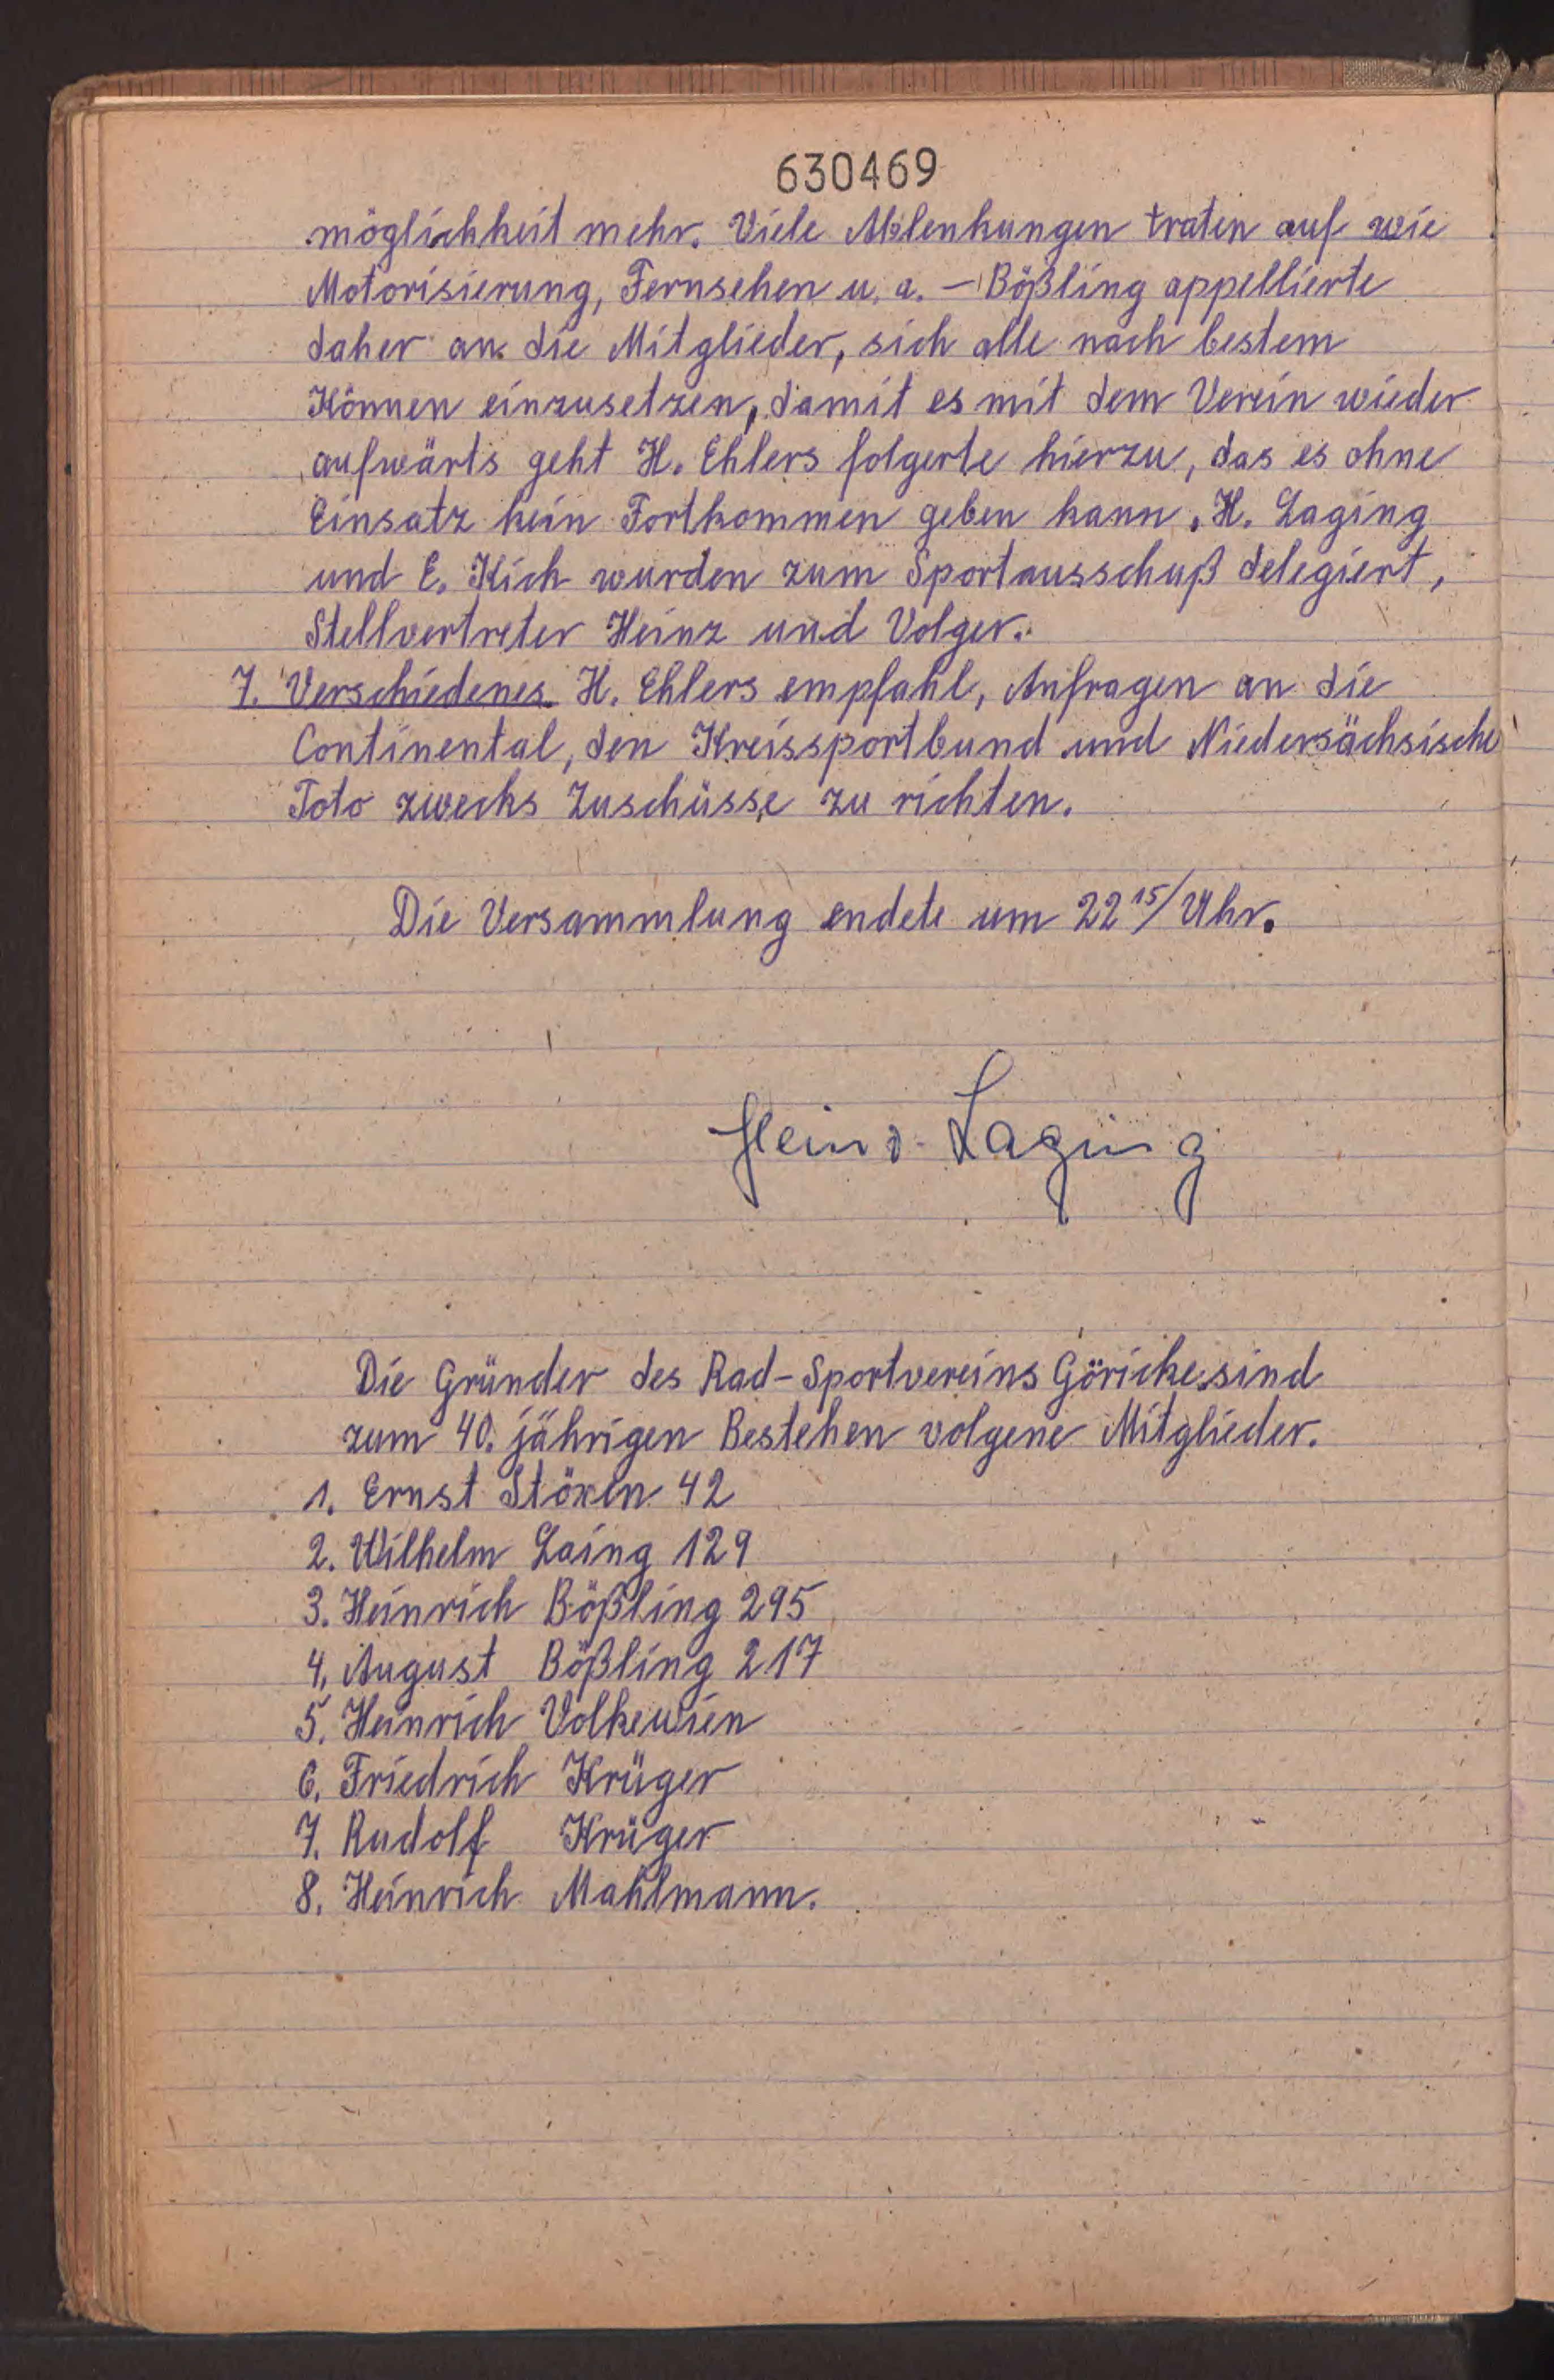 630469
möglichkeit mehr. Viele Ablenkungen traten auf wie
Motorisierung, Fernsehen u. a. - Bößling appellierte
daher an die Mitglieder, sich alle nach bestem
Können einzusetzen, damit es mit dem Verein wieder
aufwärts geht H. Ehlers folgerte hierzu, das es ohne
Einsatz kein Fortkommen geben kann. H. Laging
und E. Kich wurden zum Sportausschuß delegiert,
Stellvertreter Heinz und Volger.
7. Verschiedenes. H. Ehlers empfahl, Anfragen an die
Continental, den Kreissportbund und Niedersächsische
Toto zwecks Zuschüsse zu richten.
Die Versammlung endete um 22 15/ Uhr.
Heinz Laging
Die Gründer des Rad-Sportvereins Göricke sind
zum 40. jährigen Bestehen volgene Mitglieder.
1. Ernst Stöxen 42
2. Wilhelm Laing 129
3. Heinrich Bößling 295
4. August Bößling 217
5. Heinrich Volkewien
6. Friedrich Krüger
7. Rudolf Krüger
8. Heinrich Mahlmann.